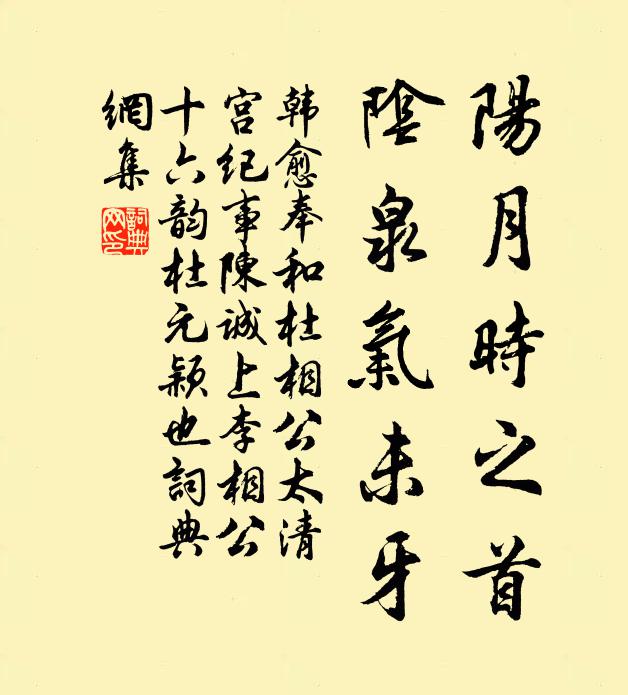 陽月時之首
陰泉氣未牙
韩愈奉和杜相公太清
宮纪事陳誠上李相公
十六韵杜元颖也詞典
網集
詞典
网印